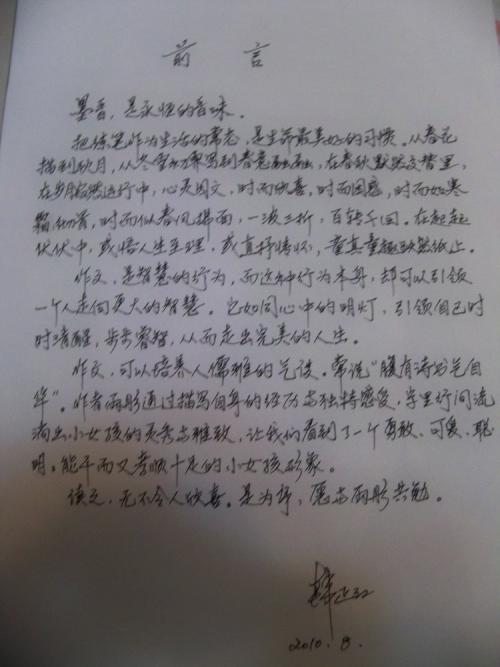 前 言
墨香，是永恒的香味。
把练笔作为生活的常态，是生命最美好的习惯。从春花
描到秋月，从冬雪初霁写到春意融融，在春秋默默交替里，
在岁月悠然运行中，心灵因文，时而欣喜，时而困惑，时而如寒
霜彻骨，时而似春风拂面，一波三折，百转千回。在起起
伏伏中，或悟人生至理，或直抒情怀，童真童趣跃然纸上。
作文，是智慧的行为，而这种行为本身，却可以引领
一个人走向更大的智慧。它如同心中的明灯，引领自己时
时清醒，步步睿智，从而走出完美的人生。
作文，可以培养人儒雅的气质。常说“腹有诗书气自
华”。作者雨彤通过描写自身的经历与独特感受，字里行间流
淌出小女孩的灵秀与雅致，让我们看到了一个勇敢、可爱、聪
明、能干而又孝顺十足的小女孩形象。
读之，无不令人欣喜。是为序，愿与雨彤共勉。
2010.8.